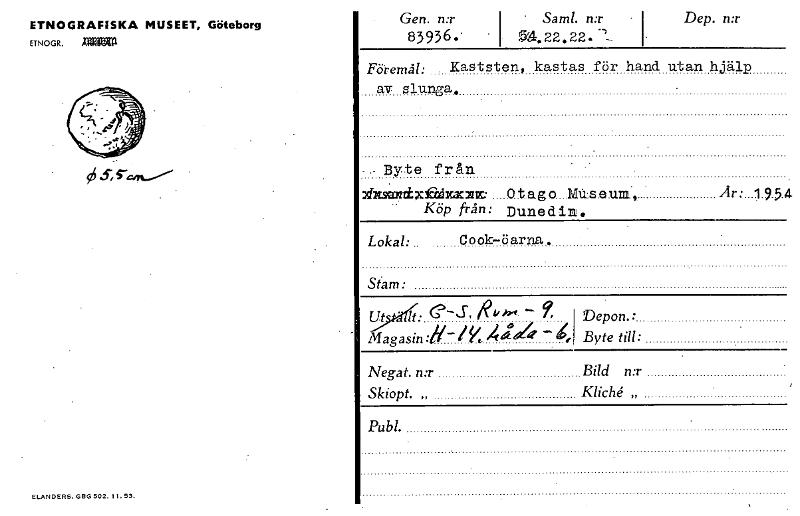 ETNOGRAFISKA MUSEET, Göteborg
ETNOGR.
ϕ 5,5 cm
ELANDERS. GBG 502. 11. 53.
Gen. n:r Saml. n:r Dep. n:r
83936. 54.22.22.
Föremål: Kaststen, kastas för hand utan hjälp
av slunga.
Byte från
Otago Museum, År: 1954
Köp från: Dunedim.
Lokal: Cook-öarna.
Stam:
Utställt: G-S. Rum - 9. Depon.:
Magasin: H-14. Låda-6. Byte till:
Negat. n:r Bild n:r
Skiopt. „ Kliché „
Publ.